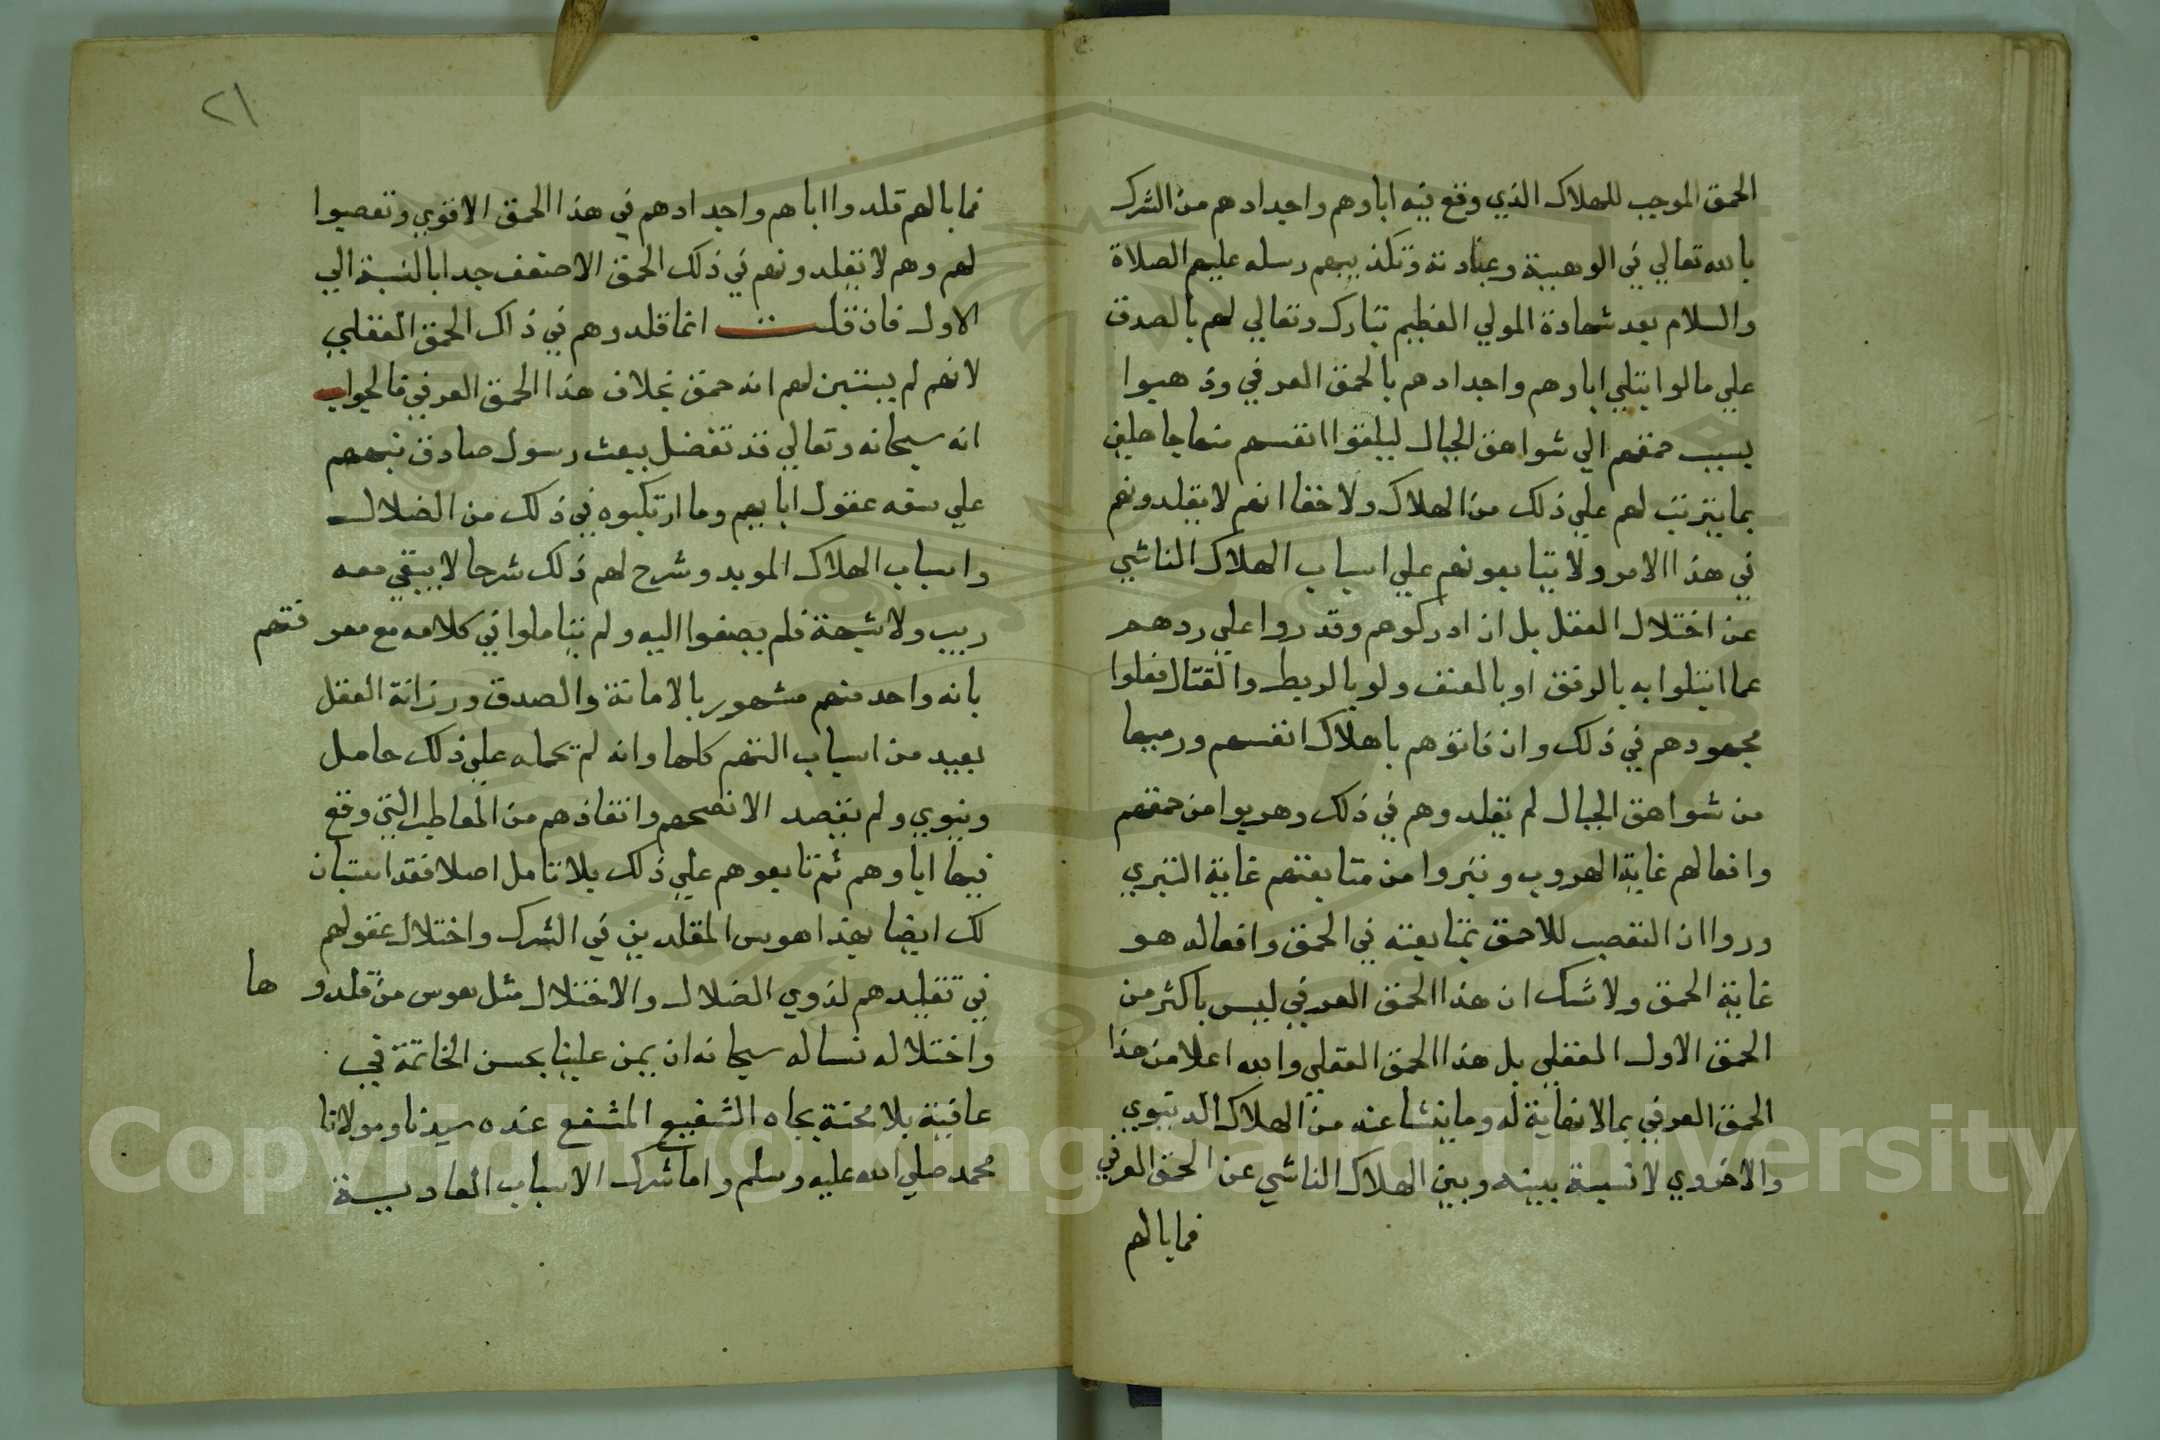 الحمق الموجب للهلاك الذي وقع فيه اباوهم واجدادهم من الشرك
بالله تعالي في الوهيية وعبادته وتكذيبهم رسله عليهم الصلاة
والسلام بعد شهادة المولي العظيم تبارك وتعالي لهم بالصدق
علي ما لو ابتلي اباوهم واجدادهم بالحمق العرفي وذهبوا
بسبب حمقهم الي شواهق الجبال ليلقوا انفسهم منها جاهلين
بما يترتب لهم علي ذلك من الهلاك ولا خفا انهم لا يقلدونهم
في هذا الامر ولا يتابعونهم علي اسباب الهلاك الناشي
عن اختلال العقل بل ان ادركوهم وقدروا علي ردهم
عما ابتلوا به بالرفق او بالعنف ولو بالربط والقتال فعلوا
مجهودهم في ذلك وان فاتوهم باهلاك انفسهم ورميها
من شواهق الجبال لم يقلدوهم في ذلك وهربوا من حمقهم
وافعالهم غاية الهروب وتبروا من متابعتهم غاية التبري
وروا ان التعصب للاحمق بمتابعته في الحمق وافعاله هو
غاية الحمق ولا شك ان هذا الحمق العرفي ليس باكثر من
الحمق الاول العقلي بل هذا الحمق العقلي والله اعلا من هذا
الحمق العرفي بما لا نهاية له وما ينشا عنه من الهلاك الدنيوي
والاخروي لا نسبة بينه وبين الهلاك الناشي عن الحمق العرفي
فما بالهم
٢١
فما بالهم قلدوا اباهم واجدادهم في هذا الحمق الاقوي وتعصبوا
لهم وهم لا يقلدونهم في ذلك الحمق الاضعف جدا بالنسبة الي
الاول فان قلت انما قلدوهم في ذاك الحمق العقلي
لانهم لم يتبين لهم انه حمق بخلاف هذا الحمق العرفي فالجواب
انه سبحانه وتعالي قد تفضل ببعث رسول صادق نبههم
علي سفه عقول ابايهم وما ارتكبوه في ذلك من الضلال
واسباب الهلاك الموبد وشرح لهم ذلك شرحا لا يبقي معه
ريب ولا شبهة فلم يصغوا اليه ولم يتاملوا في كلامه مع معرفتهم
بانه واحد منهم مشهور بالامانة والصدق ورزانة العقل
بعيد من اسباب التهم كلها وانه لم يحمله علي ذلك حامل
دنيوي ولم يقصد الا نصحهم وانقاذهم من المعاطب التي وقع
فيها اباوهم ثم تابعوهم علي ذلك بلا تامل اصلا فقد استبان
لك ايضا بهذا هوس المقلدين في الشرك واختلال عقولهم
في تقليدهم لذوي الضلال والاختلال مثل هوس من قلدوها
واختلاله نساله سبحانه ان يمن علينا بحسن الخاتمة في
عافية بلا محنة بجاه الشفيع المشفع عنده سيدنا ومولانا
محمد صلي الله عليه وسلم واما شرك الاسباب العادية
Copyright © King Saud University